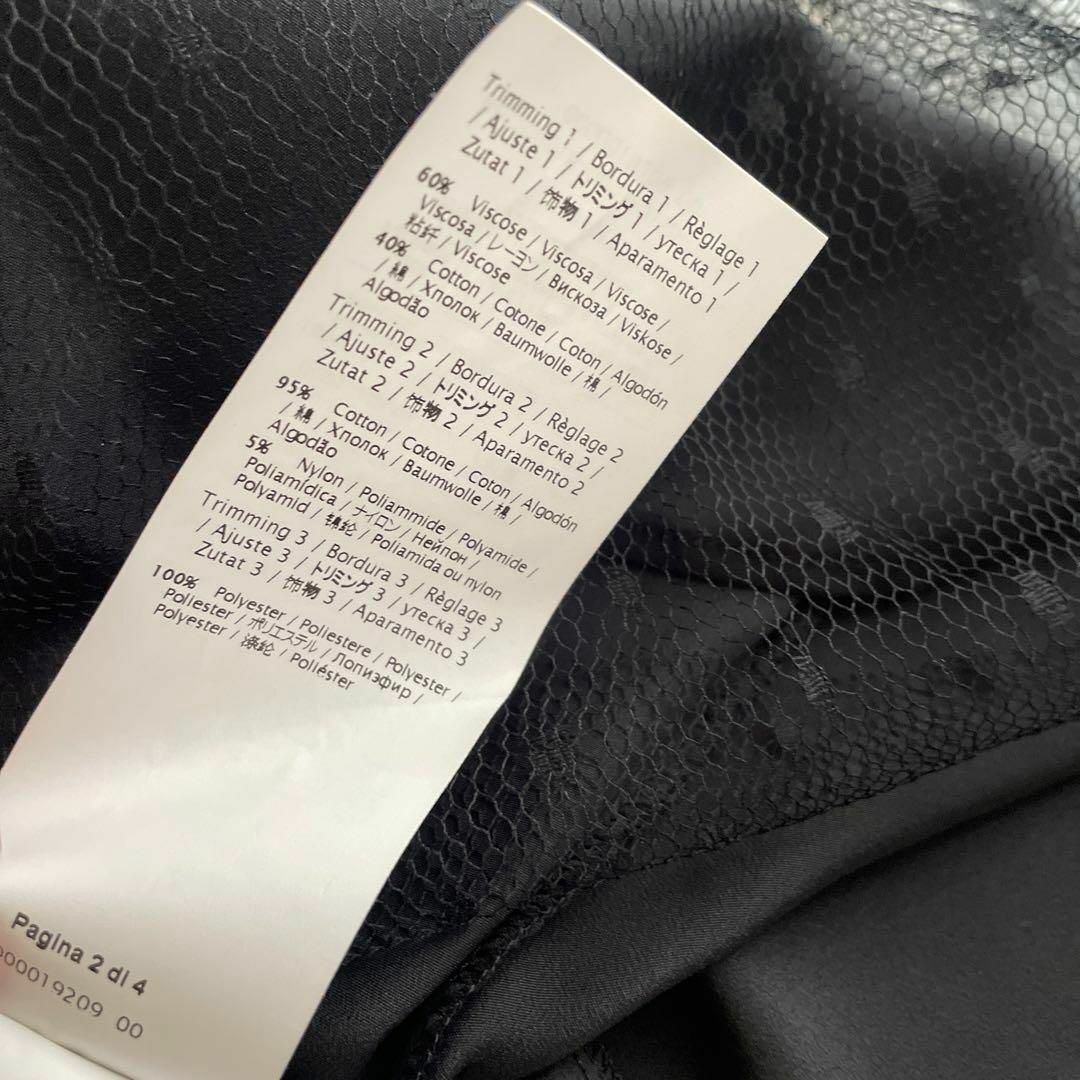 Trimming 1 / Bordura 1 / Règlage 1
/ Ajuste 1 / トリミング 1 / утеска 1 /
Zutat 1 / 饰物 1 / Aparamento 1
60% Viscose / Viscosa / Viscose /
Viscosa / レーヨン / Вискоза / Viskose /
粘纤 / Viscose
40% Cotton / Cotone / Coton / Algodón
/ 綿 / Хполок / Baumwolle / 棉 /
Algodão
Trimming 2 / Bordura 2 / Règlage 2
/ Ajuste 2 / トリミング 2 / утеска 2 /
Zutat 2 / 饰物 2 / Aparamento 2
95% Cotton / Cotone / Coton / Algodón
/ 綿 / Хполок / Baumwolle / 棉 /
Algodão
5% Nylon / Poliammide / Polyamide /
Poliamídica / ナイロン / Нейпон /
Polyamid / 锦纶 / Poliamida ou nylon
Trimming 3 / Bordura 3 / Règlage 3
/ Ajuste 3 / トリミング 3 / утеска 3 /
Zutat 3 / 饰物 3 / Aparamento 3
100% Polyester / Poliestere / Polyester /
Poliester / ポリエステル / Лопиэфир /
Polyester / 涤纶 / Poliéster
Pagina 2 di 4
000019209 00